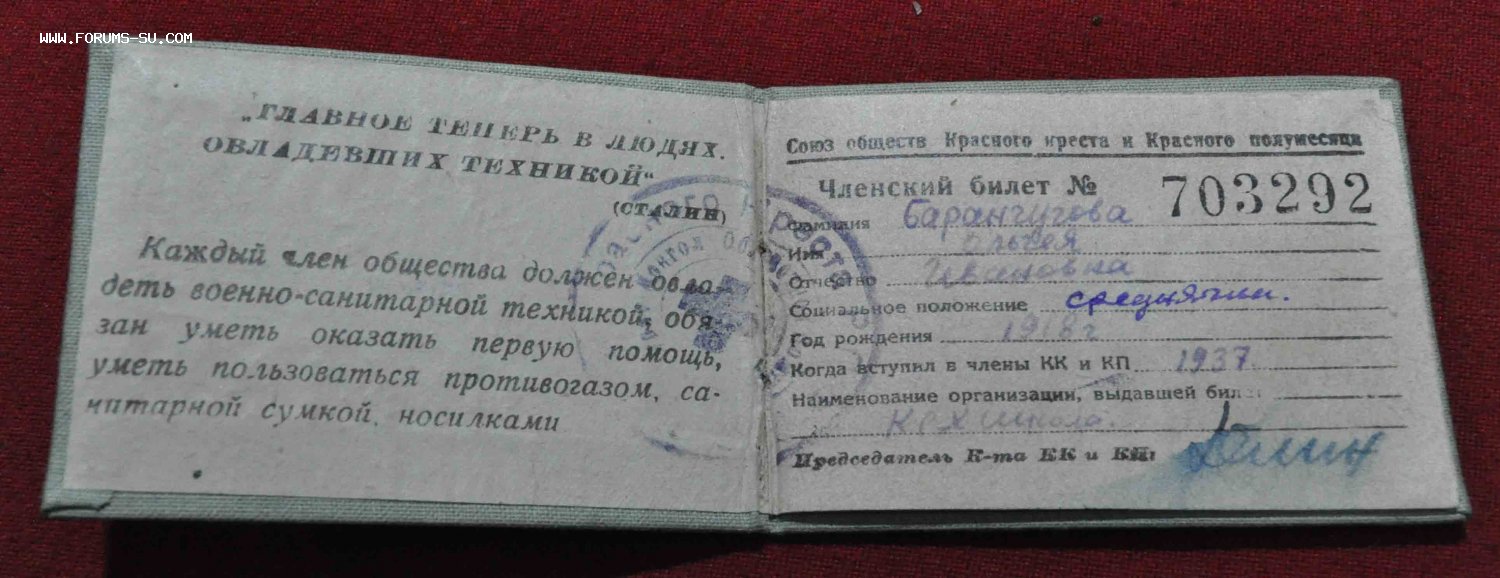 WWW.FORUMS-SU.COM
„ГЛАВНОЕ ТЕПЕРЬ В ЛЮДЯХ.
ОВЛАДЕВШИХ ТЕХНИКОЙ“
(СТАЛИН)
Каждый член общества должен овла-
деть военно-санитарной техникой, обя-
зан уметь оказать первую помощь,
уметь пользоваться противогазом, са-
нитарной сумкой, носилками
Союз обществ Красного креста и Красного полумесяца
Членский билет № 703292
Фамилия Барангугова
Имя
Отчество Ивановна
Социальное положение середнячки.
Год рождения 1918 г
Когда вступил в члены КК и КП 1937
Наименование организации, выдавшей билет
школа.
Председатель К-та КК и КП:
Красного Креста